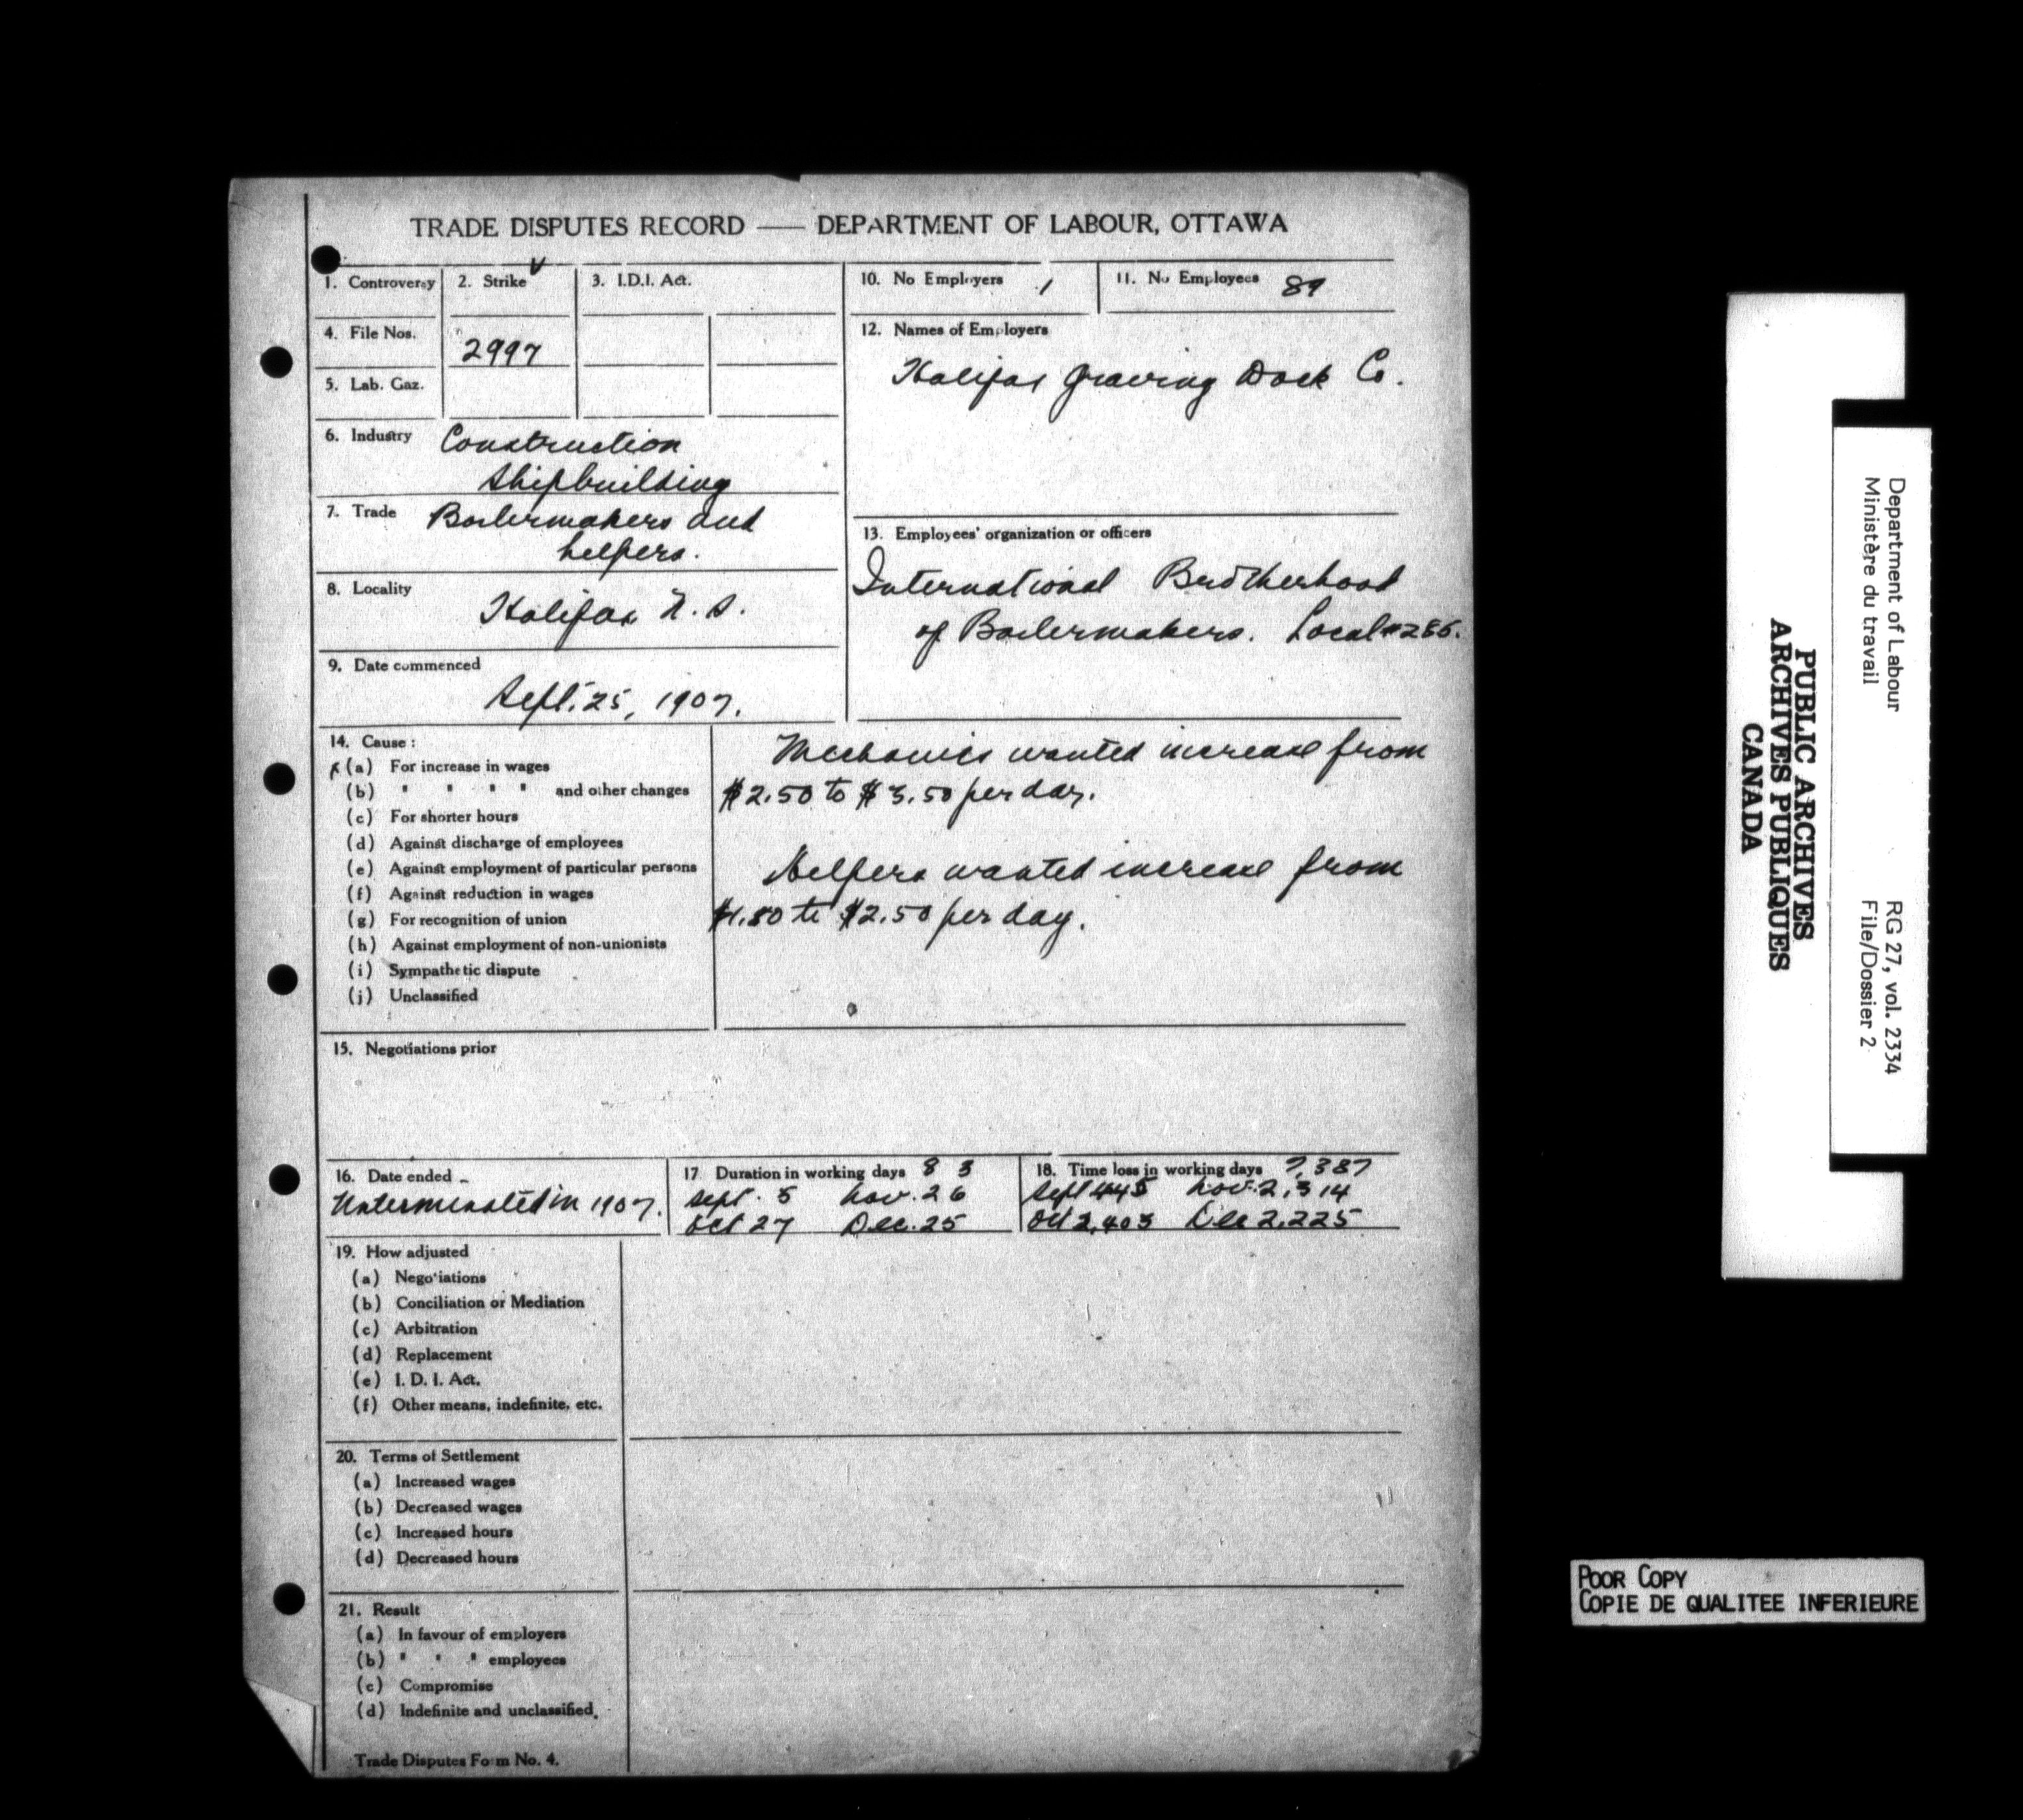 TRADE DISPUTES RECORD —— DEPARTMENT OF LABOUR, OTTAWA
1. Controversy 2. Strike 3. I.D.I. Act. 10. No Employers 1 11. No Employees 89
4. File Nos. 2997
12. Names of Employers
Halifax Graving Dock Co.
5. Lab. Gaz.
6. Industry Construction
Shipbuilding
7. Trade Boilermakers and
helpers.
13. Employees' organization or officers
International Brotherhood
of Boilermakers. Local
8. Locality
Halifax N.S.
9. Date commenced
Sept. 25, 1907.
14. Cause :
x (a) For increase in wages
(b) " " " " and other changes
(c) For shorter hours
(d) Against discharge of employees
(e) Against employment of particular persons
(f) Against reduction in wages
(g) For recognition of union
(h) Against employment of non-unionists
(i) Sympathetic dispute
(j) Unclassified
Mechanics wanted increase from
$2.50 to $3.50 per day.
Helpers wanted increase from
$1.80 to $2.50 per day.
15. Negotiations prior
16. Date ended
Unterminated in 1907.
17 Duration in working days 83
Sept. 5 Nov. 26
Oct 27 Dec. 25
18. Time loss in working days 7,387
Sept 445 Nov. 2,314
Oct 2,403 Dec 2,225
19. How adjusted
(a) Negotiations
(b) Conciliation or Mediation
(c) Arbitration
(d) Replacement
(e) I. D. I. Act.
(f) Other means, indefinite, etc.
20. Terms of Settlement
(a) Increased wages
(b) Decreased wages
(c) Increased hours
(d) Decreased hours
21. Result
(a) In favour of employers
(b) " " " employees
(c) Compromise
(d) Indefinite and unclassified.
Trade Disputes Form No. 4.
Department of Labour
Ministère du travail
RG 27, vol. 2334
File/Dossier 2
PUBLIC ARCHIVES
ARCHIVES PUBLIQUES
CANADA
POOR COPY
COPIE DE QUALITEE INFERIEURE